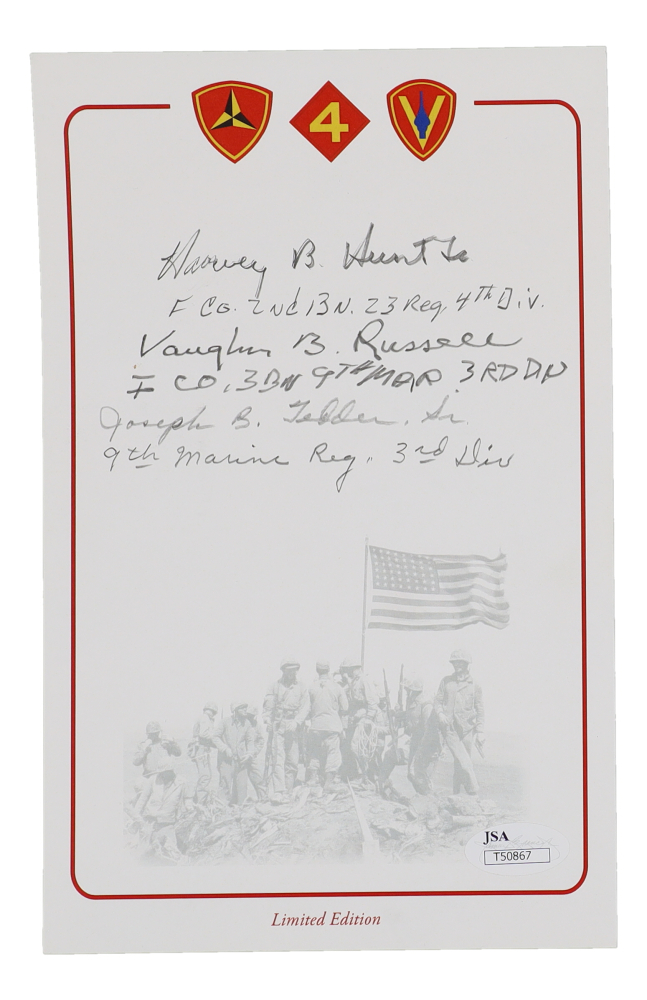 4
Harvey B. Hunt Jr
F Co. 2nd Bn. 23 Reg. 4th Div.
Vaughn B. Russell
I CO. 3BN 9TH MAR 3RD DIV
Joseph B. Tedder, Sr.
9th Marine Reg. 3rd Div
JSA
T50867
Limited Edition